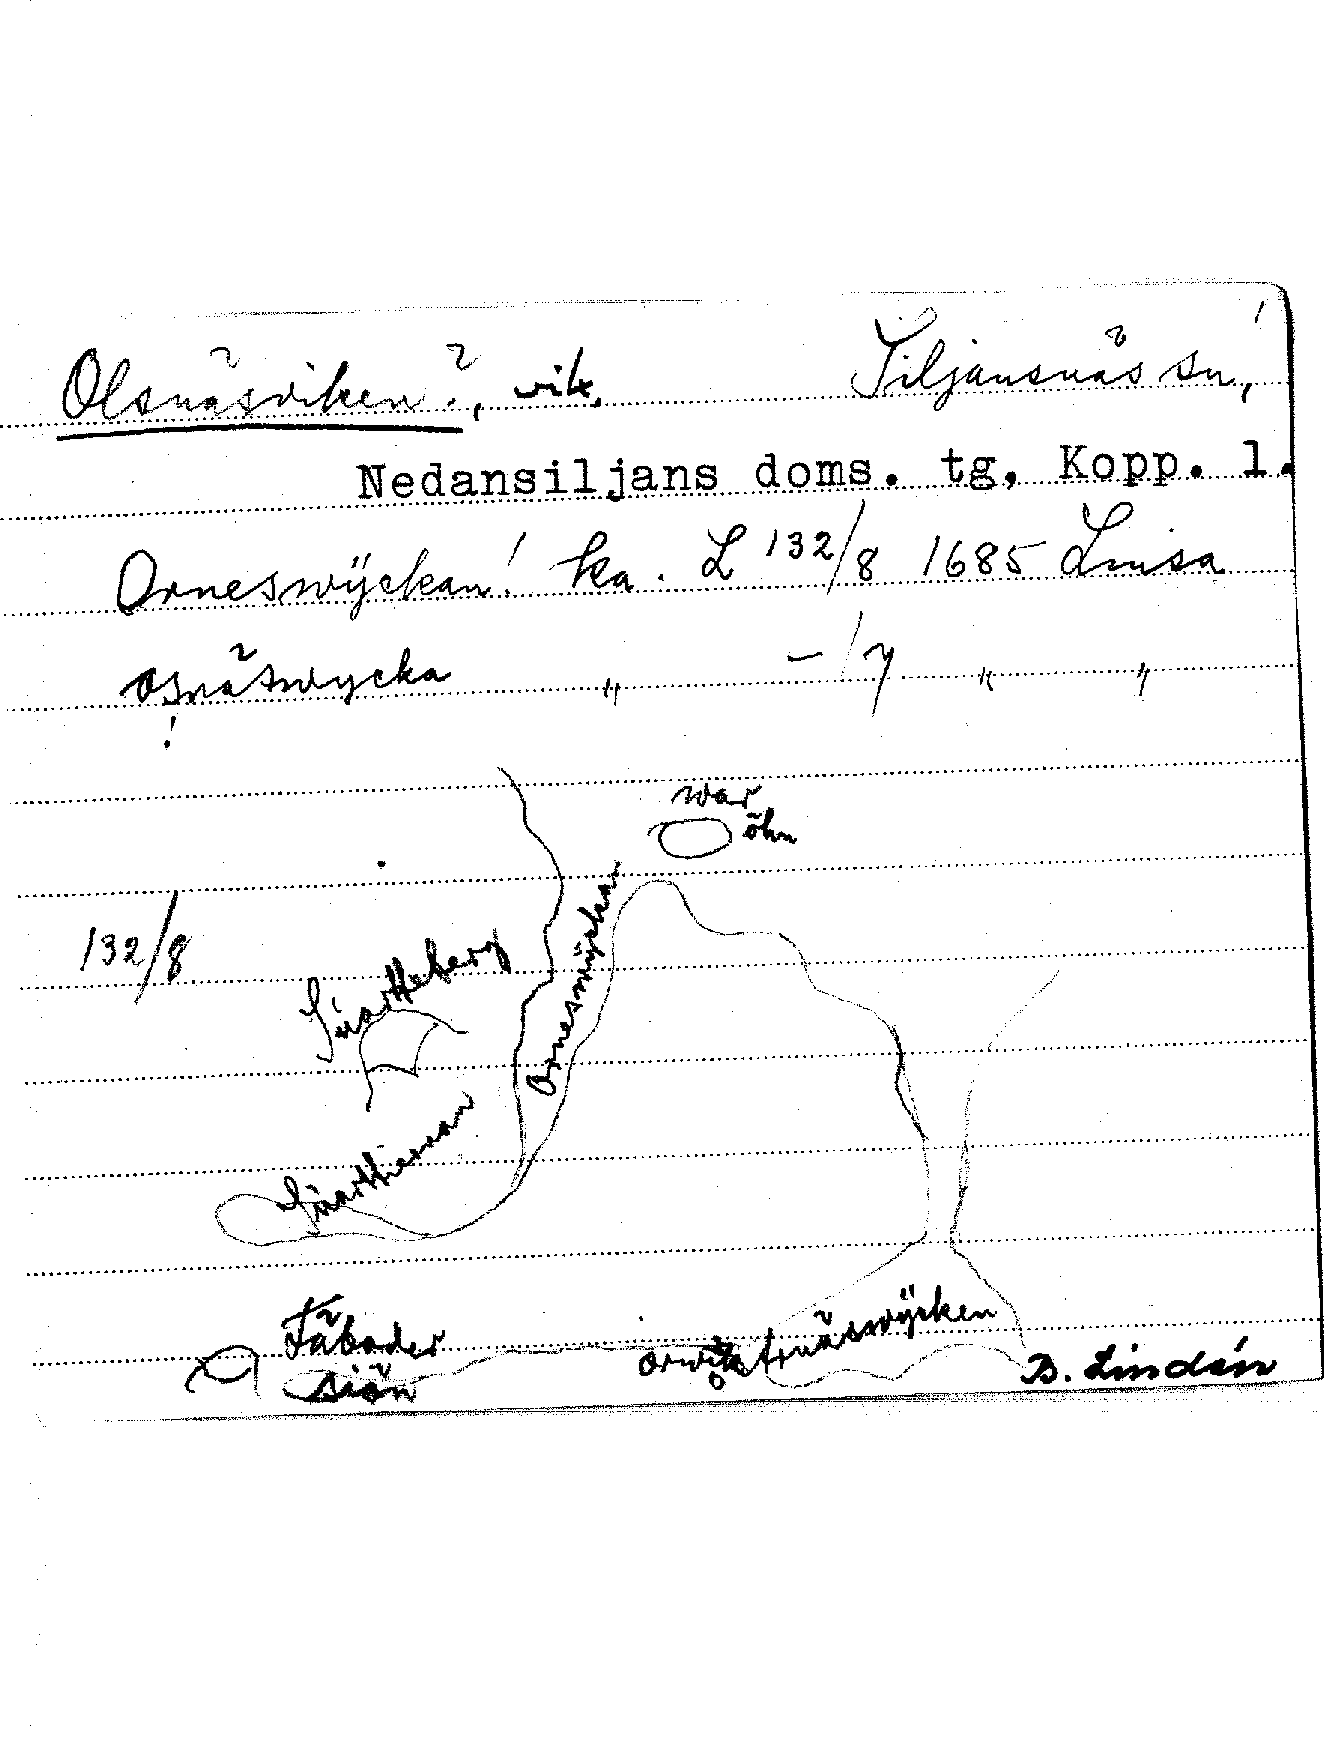 Olsnäsviken?, vik,
Siljansnäs sn,
Nedansiljans doms. tg, Kopp. l.
Orneswÿckan! ka. L 132/8 1685 Linsa
Osnäswycka " -/7 " "
!
war
öhn
132/8
Suartteberg
Orneswÿckan
Suarttiernan
Fäboder
siön
Arnäswÿcken
B. Lindén